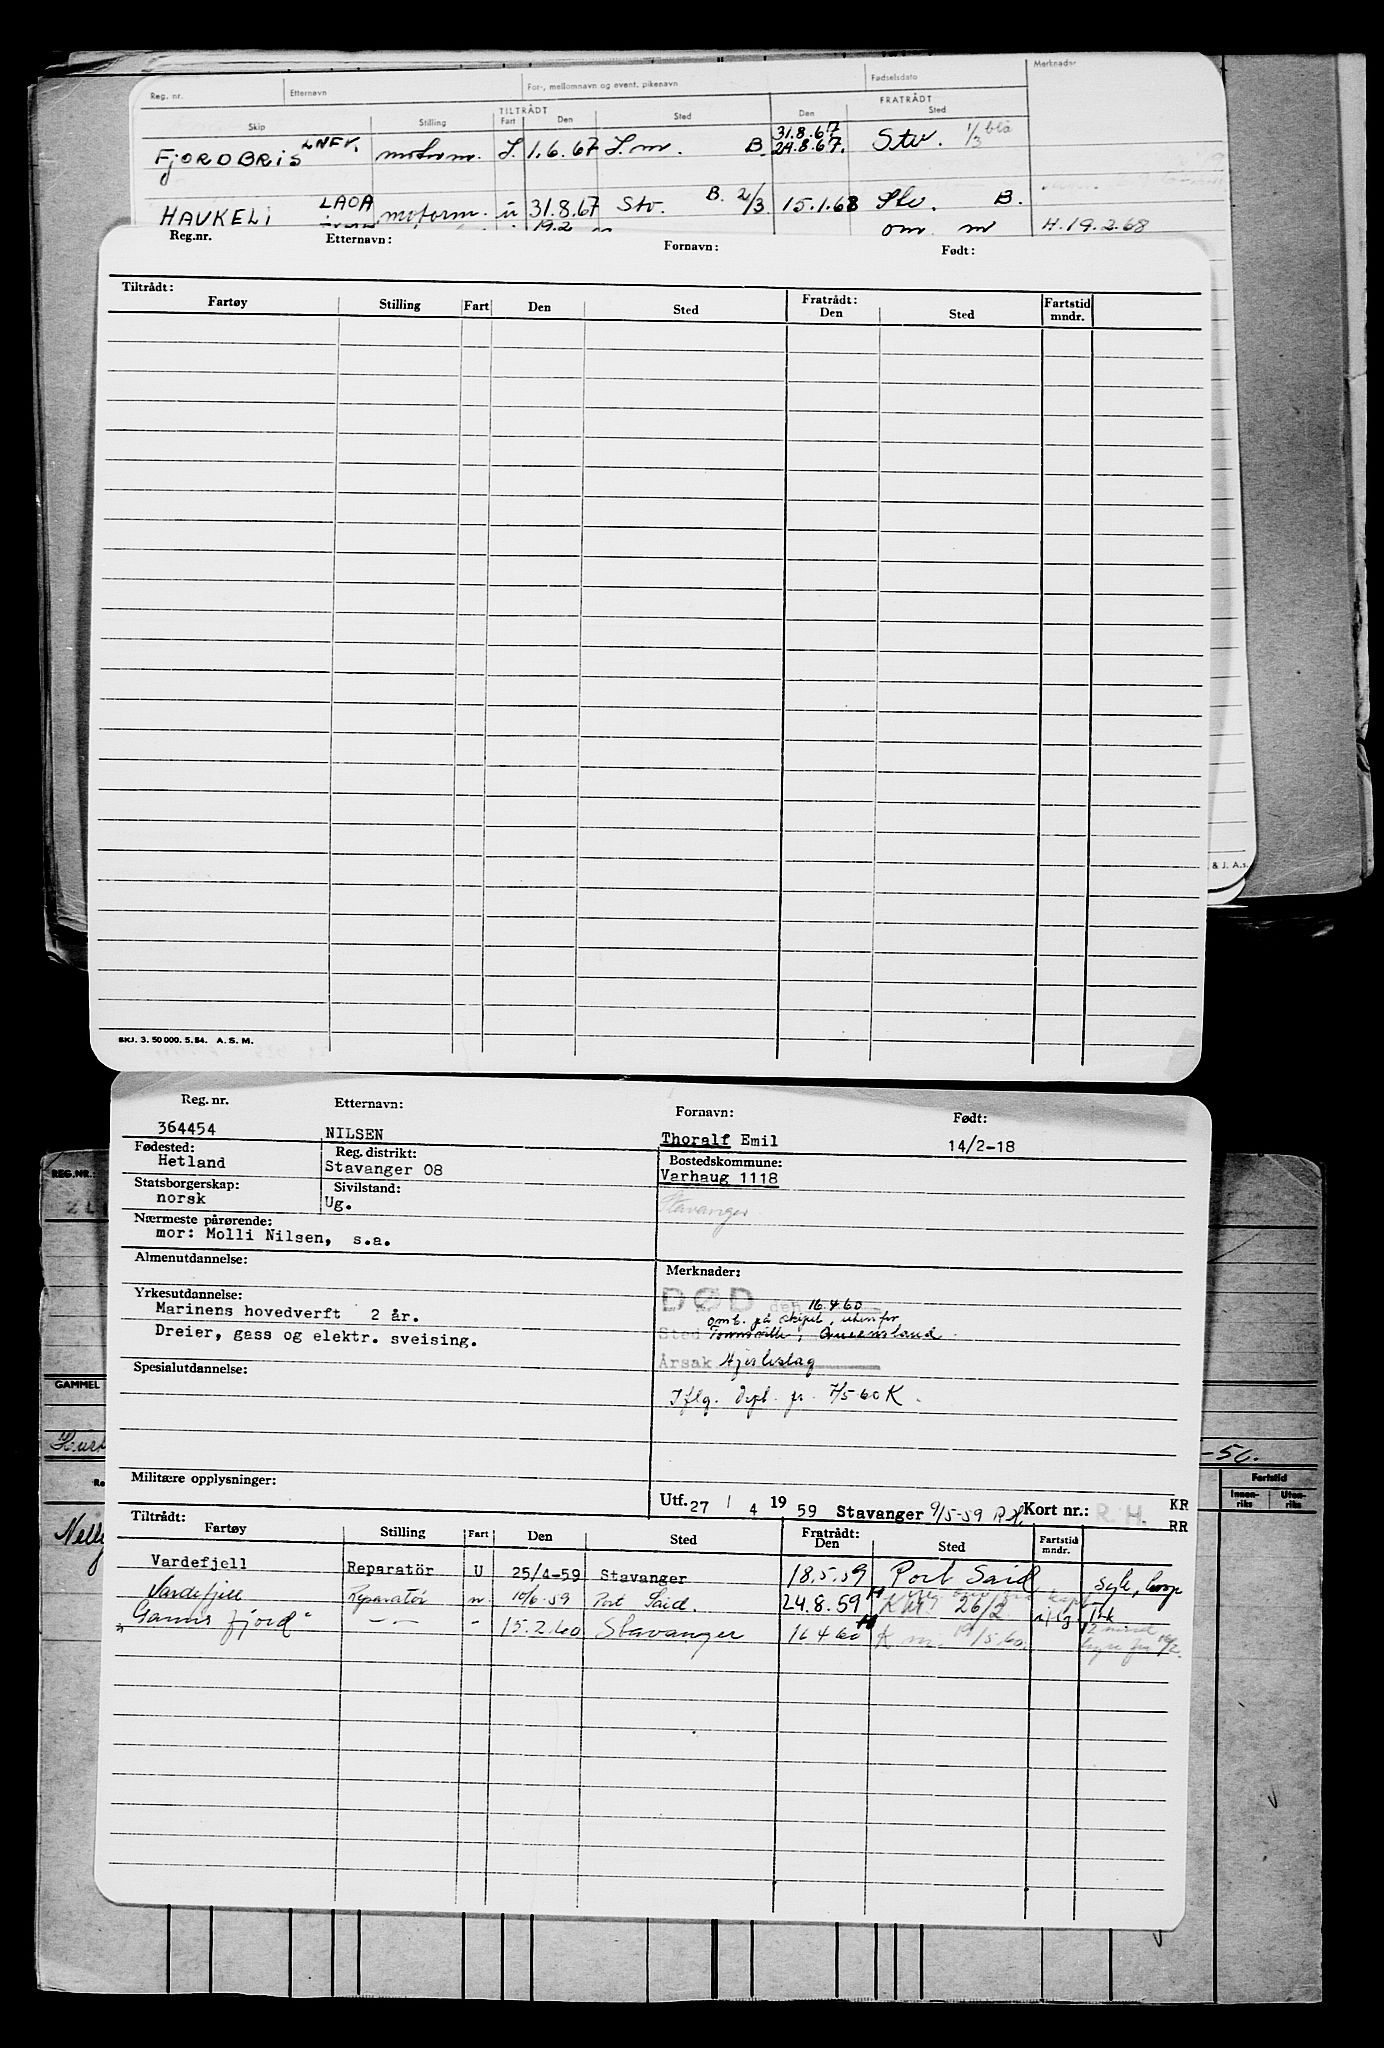 Reg. nr. Etternavn For-, mellomnavn og event. pikenavn Fødselsdato Merknader
TILTRÅDT FRATRÅDT
Skip Stilling Fart Den Sted Den Sted
FJORDBRIS LNFV. motorm. S. 1.6.67 S.m. B. 31.8.67 24.8.67. Stv. 1/3 blå
HAUKELI LAOA motorm. u 31.8.67 Stv. B. 2/3. 15.1.68 Stv. B.
19.2 om m H.19.2.68
Reg.nr. Etternavn: Fornavn: Født:
Tiltrådt: Fratrådt:
Fartøy Stilling Fart Den Sted Den Sted Fartstid mndr.
& J. A.s.
SKJ. 3. 50 000. 5. 54. A. S. M.
Reg. nr. Etternavn: Fornavn: Født:
364454 NILSEN Thoralf Emil 14/2-18
Fødested: Reg. distrikt: Bostedskommune:
Hetland Stavanger 08 Varhaug 1118
Statsborgerskap: Sivilstand:
norsk Ug. Stavanger
Nærmeste pårørende:
mor: Molli Nilsen, s.a.
Almenutdannelse: Merknader:
Yrkesutdannelse: DØD den 16.4.60
Marinens hovedverft 2 år. omb. på skipet, utenfor
Dreier, gass og elektr. sveising. Sted Townsville, Queensland.
Spesialutdannelse: Årsak Hjerteslag
Iflg. dpl. fr. 7/5 60 K.
Militære opplysninger:
Utf. 27 / 4 19 59 Stavanger 9/5-59 Kort nr.: R. H. KR
RR
Tiltrådt: Fratrådt:
Fartøy Stilling Fart Den Sted Den Sted Fartstid mndr.
Vardefjell Reparatör U 25/4-59 Stavanger 18.5.59 Port Said
Vardefjell Reparatör n. 10/6-59 Port Said. 24.8.59 26/2
Garnis fjord" -"- - 15.2.60 Stavanger 16 4 60 K m. 19/5.60.
REG.NR.
GAMMEL
-56.
Fartstid
Innenriks Utenriks